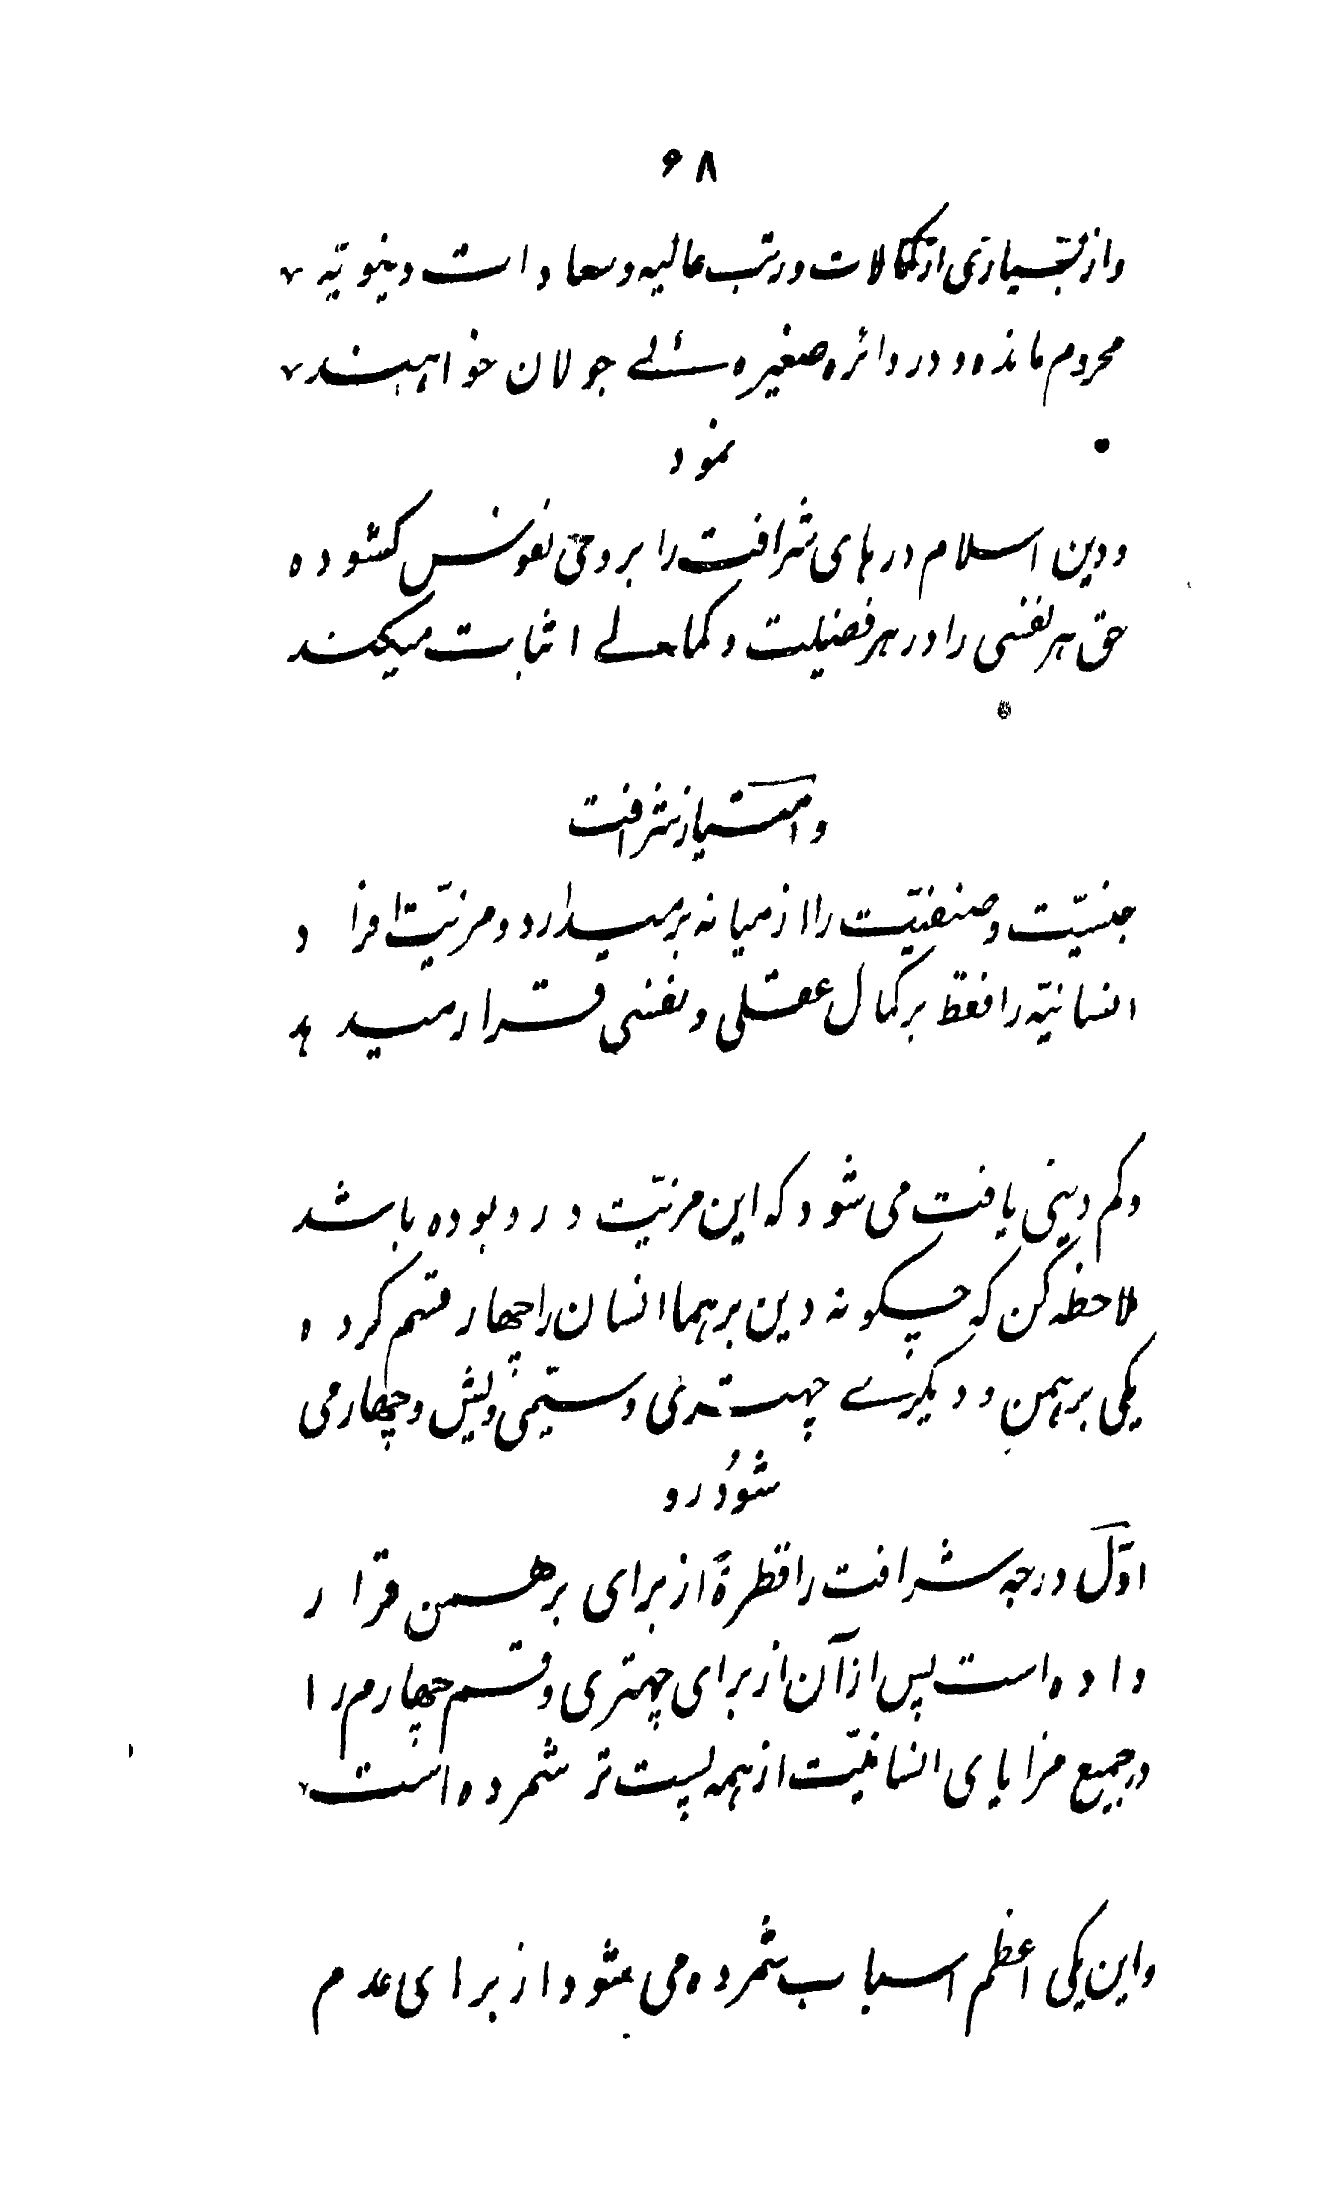 ۶۸
واز بسیاری از کمالات ورتب عالیه وسعادات دینویّه
محروم مانده ودر دائره صغیره ئے جولان خواهند
نمود
ودین اسلام درهای شرافت را بروی نفوس کشوده
حق هر نفسی را در هر فضیلت وکمالے اثبات میکند
وامتیاز شرافت
جنسیّت وصنفیّت را از میانه برمیدارد ومزیّت افراد
انسانیّه را فقط بر کمال عقلی ونفسی قرار میدهد
وکم دینی یافت می شود که این مزیّت در وبوده باشد
ملاحظه کن که چگونه دین برهما انسان را چهار قسم کرده
یکی برهمن و دیگرے چهتری وسیّمی ویش وچهارمی
شوُدرو
اوّل درجه شرافت را فطرةً از برای برهمن قرار
داده است پس از آن از برای چهتری وقسم چهارم را
در جمیع مزایای انسانیّت از همه پست تر شمرده است
واین یکی اعظم اسباب شمرده می شود از برای عدم